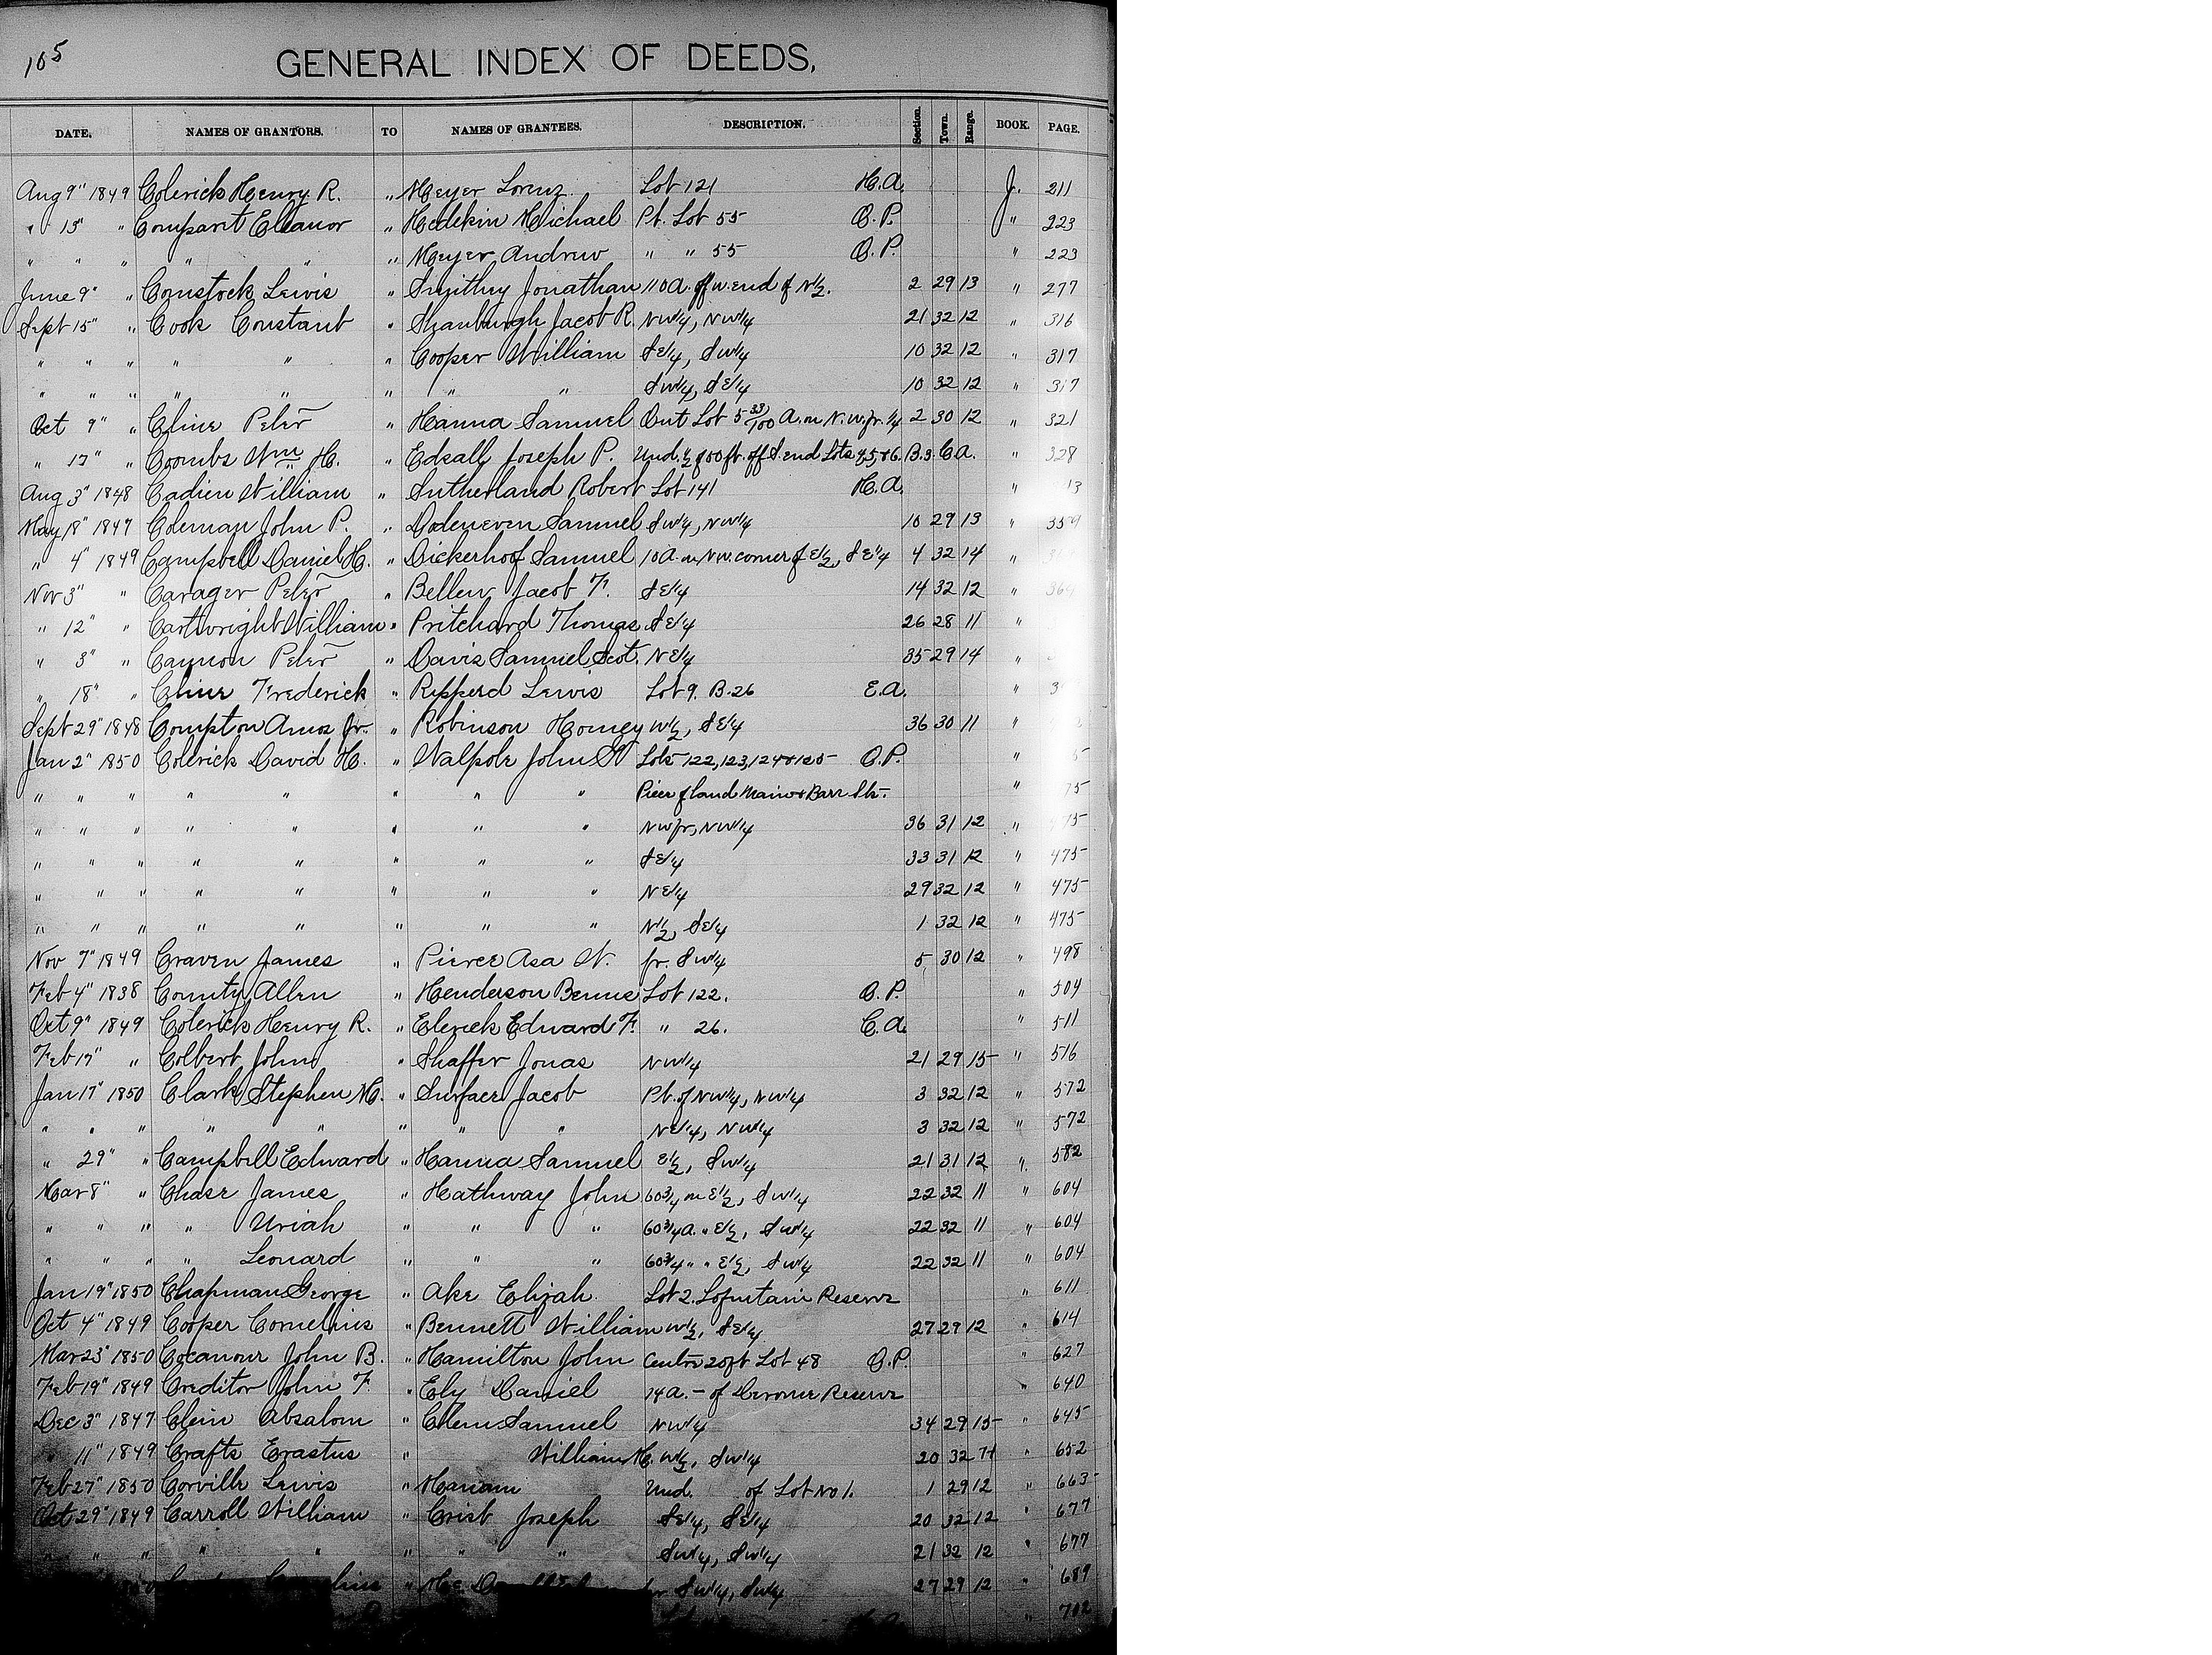 105
GENERAL INDEX OF DEEDS.
DATE. NAMES OF GRANTORS. TO NAMES OF GRANTEES. DESCRIPTION. Section. Town. Range. BOOK. PAGE.
Aug 9" 1849 Colerick Henry R. " Meyer Lorenz Lot 121 H.A. J. 211
" 13" " Comparit Eleanor " Hedekin Michael Pt. Lot 55 O.P. " 223
" " " " " " Meyer Andrew " " 55 O.P. " 223
June 9" " Comstock Lewis " Smithy Jonathan 110 A. off W. end of N½. 2 29 13 " 277
Sept 15" " Cook Constant " Shanburgh Jacob R. NW¼, NW¼ 21 32 12 " 316
" " " " " " Cooper William SE¼, SW¼ 10 32 12 " 317
" " " " " " " " SW¼, SE¼ 10 32 12 " 317
Oct 9" " Cline Peter " Hanna Samuel Out Lot 5 33/100 A. in N.W. fr. ¼ 2 30 12 " 321
" 17" " Coombs Wm H. " Edsall Joseph P. Und. ½ of 80 ft. off S. end Lots 4,5,&6. B.3. C.A. " 328
Aug 3" 1848 Cadien William " Sutherland Robert Lot 141 H.A. " 13
May 18" 1847 Coleman John P. " Bodeneven Samuel SW¼, NW¼ 10 29 13 " 359
" 4" 1849 Campbell Daniel H. " Dickerhoof Samuel 10 A. in NW. corner of E½, SE¼ 4 32 14 "
Nov 3" " Carager Peter " Bellew Jacob F. SE¼ 14 32 12 " 364
" 12" " Cartwright William " Pritchard Thomas SE¼ 26 28 11 "
" 3" " Cannon Peter " Davis Samuel Scot. NE¼ 35 29 14 "
" 18" " Cline Frederick " Ripperd Lewis Lot 9. B. 26 E.A. "
Sept 29" 1848 Compton Amos Jr. " Robinson Homey W½, SE¼ 36 30 11 "
Jan 2" 1850 Colerick David H. " Walpole John W Lots 122, 123, 124 & 125 O.P. " 5
" " " " " " " " Piece of land Main & Barr Sts. " 75
" " " " " " " " NW fr, NW¼ 36 31 12 " 475
" " " " " " " " SE¼ 33 31 12 " 475
" " " " " " " " NE¼ 29 32 12 " 475
" " " " " " " " N½, SE¼ 1 32 12 " 475
Nov 7" 1849 Craven James " Pierce Asa W. fr. SW¼ 5 30 12 " 498
Feb 4" 1838 County Allen " Henderson Bennie Lot 122. O.P. " 504
Oct 9" 1849 Colerick Henry R. " Clerick Edward F. " 26. C.A. " 511
Feb 17" " Colbert John " Shaffer Jonas NW¼ 21 29 15 " 516
Jan 17" 1850 Clark Stephen M. " Surfaer Jacob Pt. of NW¼, NW¼ 3 32 12 " 572
" " " " " " " " NE¼, NW¼ 3 32 12 " 572
" 29" " Campbell Edward " Hanna Samuel E½, SW¼ 21 31 12 " 582
Mar 8" " Chase James " Hathway John 60¾ in E½, SW¼ 22 32 11 " 604
" " " " Uriah " " " 60¾ A. " E½, SW¼ 22 32 11 " 604
" " " " Leonard " " " 60¾ " " E½, SW¼ 22 32 11 " 604
Jan 19" 1850 Chapman George " Ake Elijah Lot 2. Lofontain Reserve " 611
Oct 4" 1849 Cooper Cornelius " Bennett William W½, SE¼ 27 29 12 " 614
Mar 23" 1850 Cocanour John B. " Hamilton John Centre 20 ft Lot 48 O.P. " 627
Feb 19" 1849 Creditor John F. " Ely Daniel 14 A. - of Derome Reserve " 640
Dec 3" 1847 Clem Absalom " Clem Samuel NW¼ 34 29 15 " 645
" 11" 1849 Crafts Erastus " William H. W½, SW¼ 20 32 " 652
Feb 27" 1850 Corville Lewis " Mariam Und. of Lot No 1. 1 29 12 " 663
Oct 29" 1849 Carroll William " Crist Joseph SE¼, SE¼ 20 32 12 " 677
" " " " " " " " SW¼, SW¼ 21 32 12 " 677
" Mc. SW¼, SW¼ 27 29 12 " 689
" 702